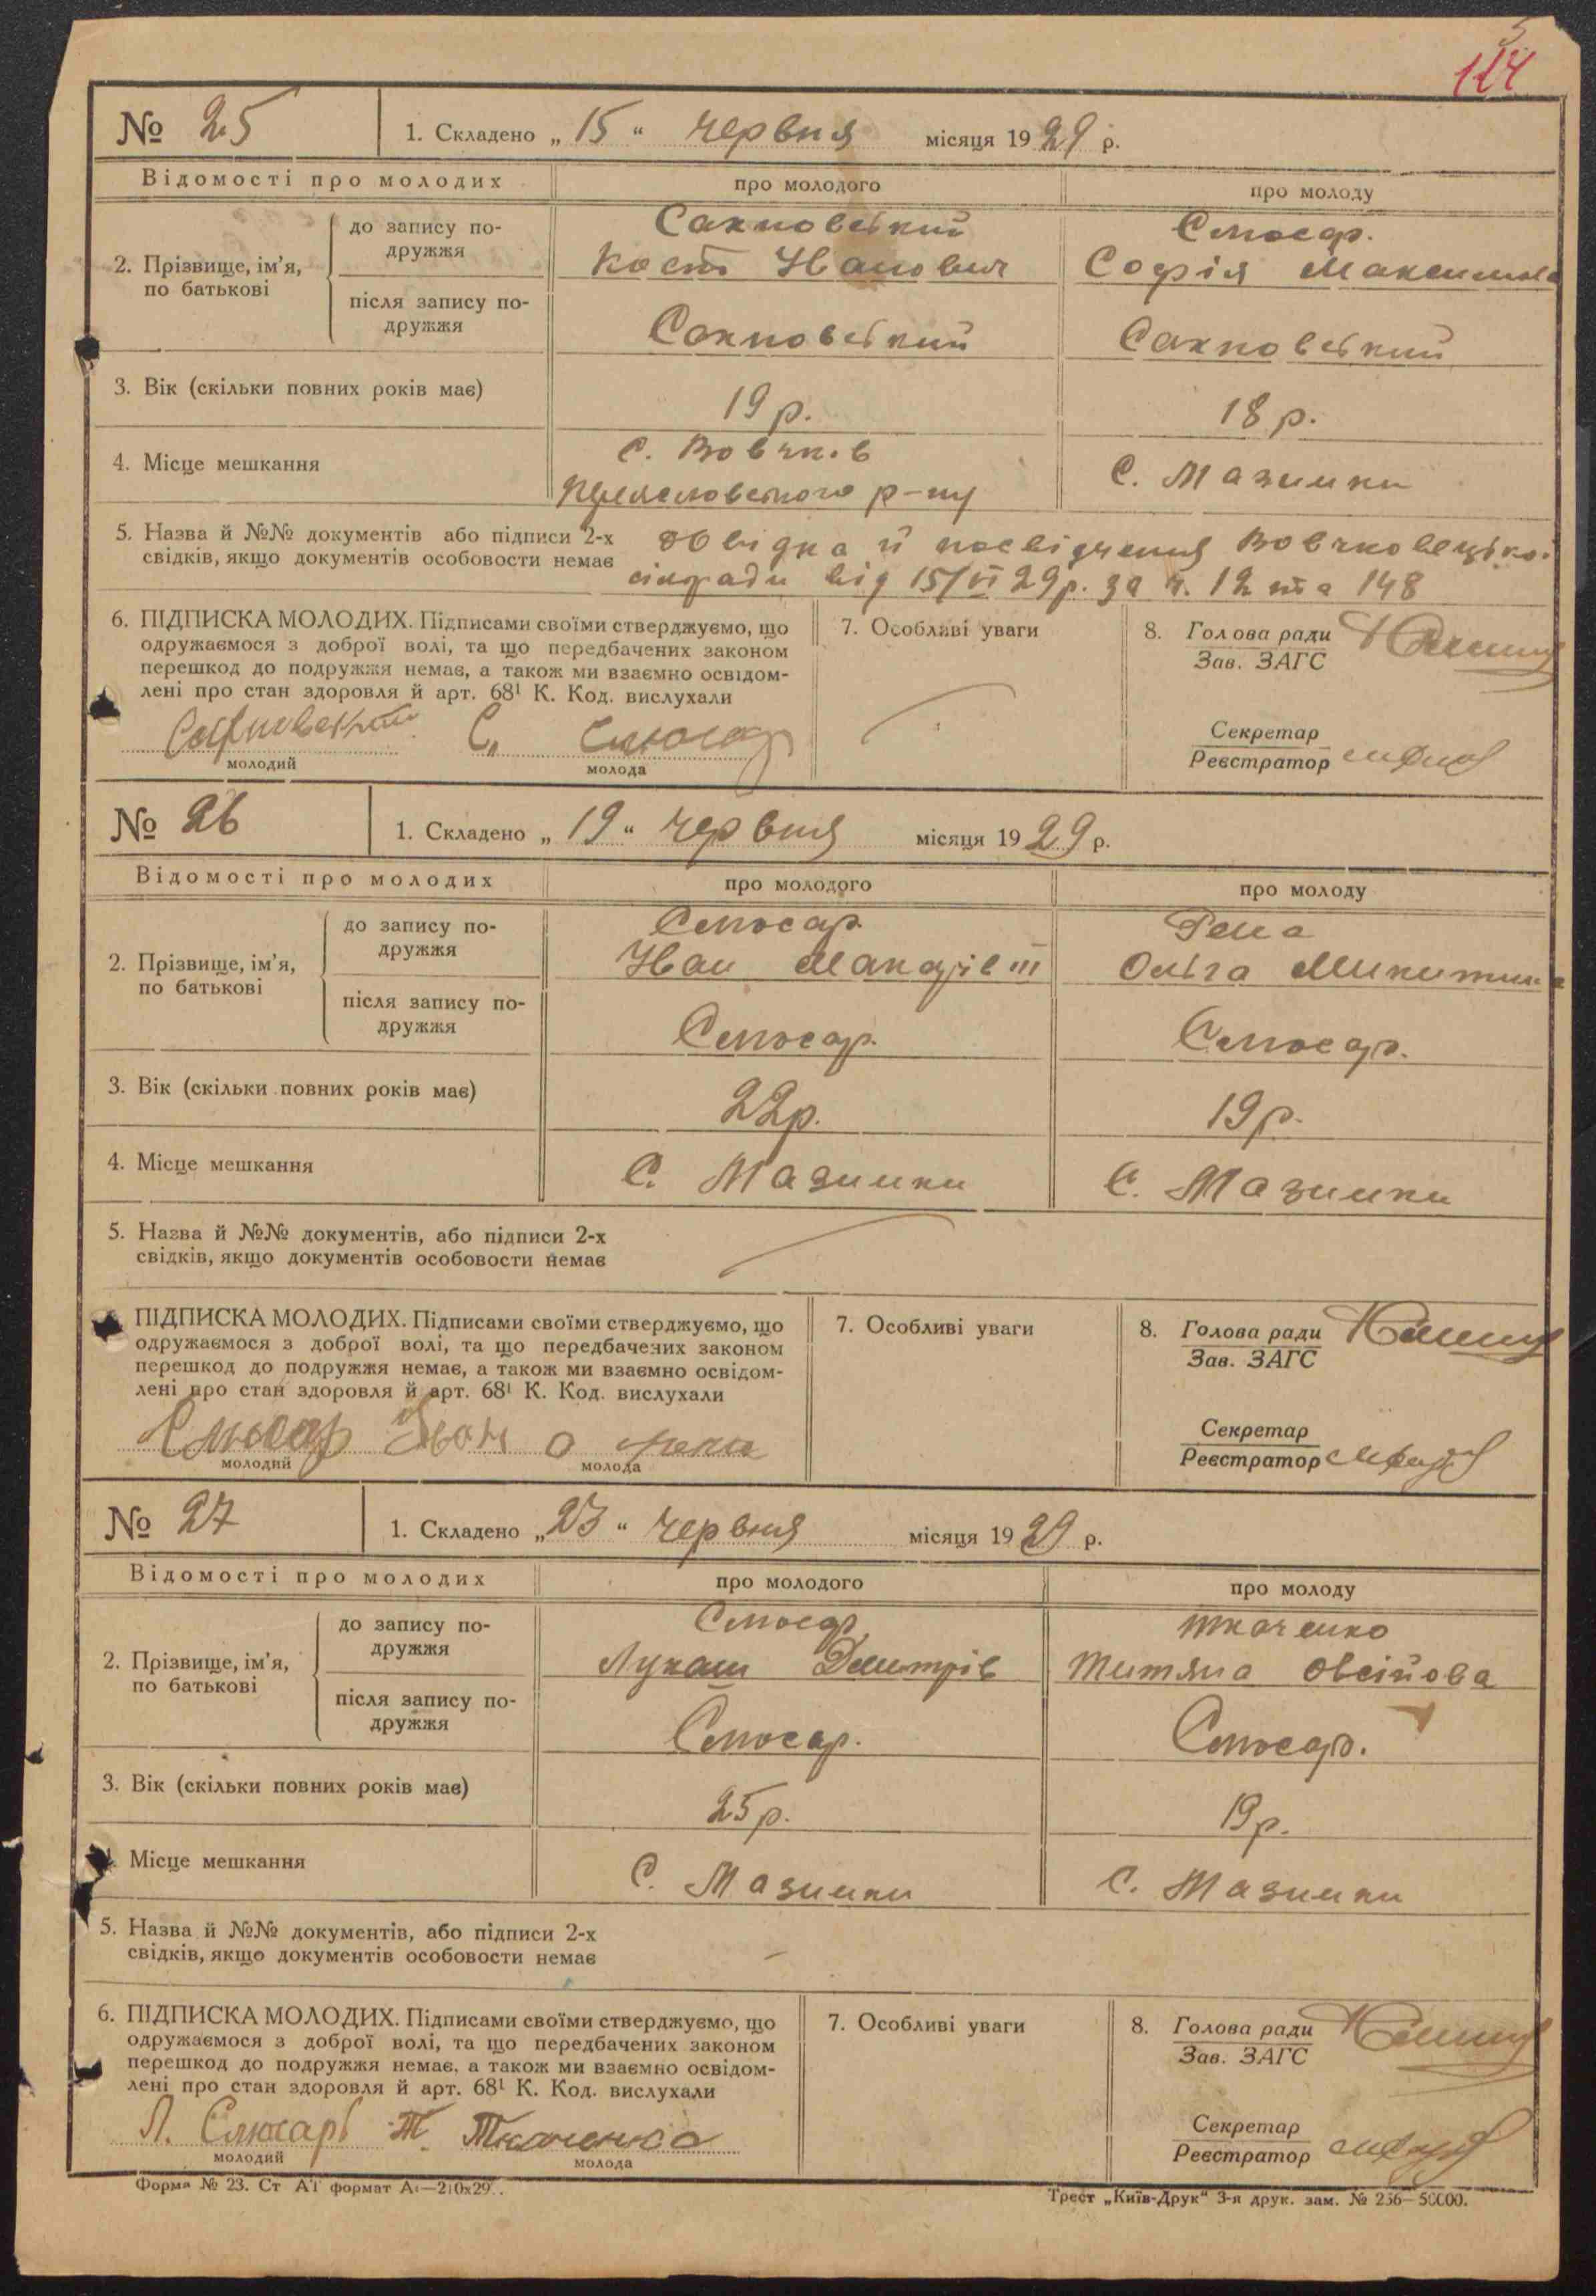 114
№ 25
1. Складено „15“ червня місяця 1929 р.
Відомості про молодих
про молодого
про молоду
2. Прізвище, ім’я, по батькові
до запису подружжя
Сахновський
Кость Іванович
Слюсар.
Софія Максимова
після запису подружжя
Сахновський
Сахновський
3. Вік (скільки повних років має)
19 р.
18 р.
4. Місце мешкання
С. Вовчків
Переяславського р-ну
С. Мазинки
5. Назва й №№ документів або підписи 2-х
свідків, якщо документів особовости немає
довідка й посвідчення Вовчковецької
сільради від 15/VI 29р. за ч. 12 та 148
6. ПІДПИСКА МОЛОДИХ. Підписами своїми стверджуємо, що
одружаємося з доброї волі, та що передбачених законом
перешкод до подружжя немає, а також ми взаємно освідом-
лені про стан здоровля й арт. 68¹ К. Код. вислухали
Сахновський С. Слюсар
молодий
молода
7. Особливі уваги
8. Голова ради
Зав. ЗАГС
Секретар
Реєстратор
№ 26
1. Складено „19“ червня місяця 1929 р.
Відомості про молодих
про молодого
про молоду
2. Прізвище, ім’я,
по батькові
до запису по-
дружжя
Слюсар
Іван Макарів III
Рета
Ольга Микитина
після запису по-
дружжя
Слюсар.
Слюсар.
3. Вік (скільки повних років має)
22р.
19р.
4. Місце мешкання
С. Мазинки
С. Мазинки
5. Назва й №№ документів, або підписи 2-х
свідків, якщо документів особовости немає
ПІДПИСКА МОЛОДИХ. Підписами своїми стверджуємо, що
одружаємося з доброї волі, та що передбачених законом
перешкод до подружжя немає, а також ми взаємно освідом-
лені про стан здоровля й арт. 68¹ К. Код. вислухали
Слюсар Іван О
молодий
молода
7. Особливі уваги
8. Голова ради
Зав. ЗАГС
Секретар
Реєстратор
№ 27
1. Складено „23“ червня місяця 1929 р.
Відомості про молодих
про молодого
про молоду
2. Прізвище, ім’я,
по батькові
до запису по-
дружжя
Слюсар
Лукаш Дмитрів
Ткаченко
Титяна Овсійова
після запису по-
дружжя
Слюсар.
Слюсар.
3. Вік (скільки повних років має)
25р.
19р.
4. Місце мешкання
С. Мазинки
С. Мазинки
5. Назва й №№ документів, або підписи 2-х
свідків, якщо документів особовости немає
6. ПІДПИСКА МОЛОДИХ. Підписами своїми стверджуємо, що
одружаємося з доброї волі, та що передбачених законом
перешкод до подружжя немає, а також ми взаємно освідом-
лені про стан здоровля й арт. 68¹ К. Код. вислухали
Л. Слюсарь Т. Ткаченко
молодий
молода
7. Особливі уваги
8. Голова ради
Зав. ЗАГС
Секретар
Реєстратор
Форма № 23. Ст А1 формат А—210х29
Трест „Київ-Друк“ 3-я друк. зам. № 256—50000.